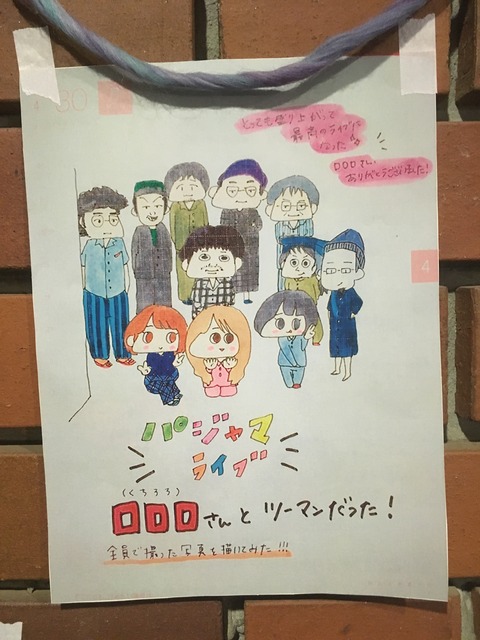 30
とっても盛り上がって
最高のライブに
なった
口口口さん、
ありがとうございました!
4
パジャマ
ライブ
(くちろろ)
口口口さんとツーマンだった!
全員で撮った写真を描いてみた!!!